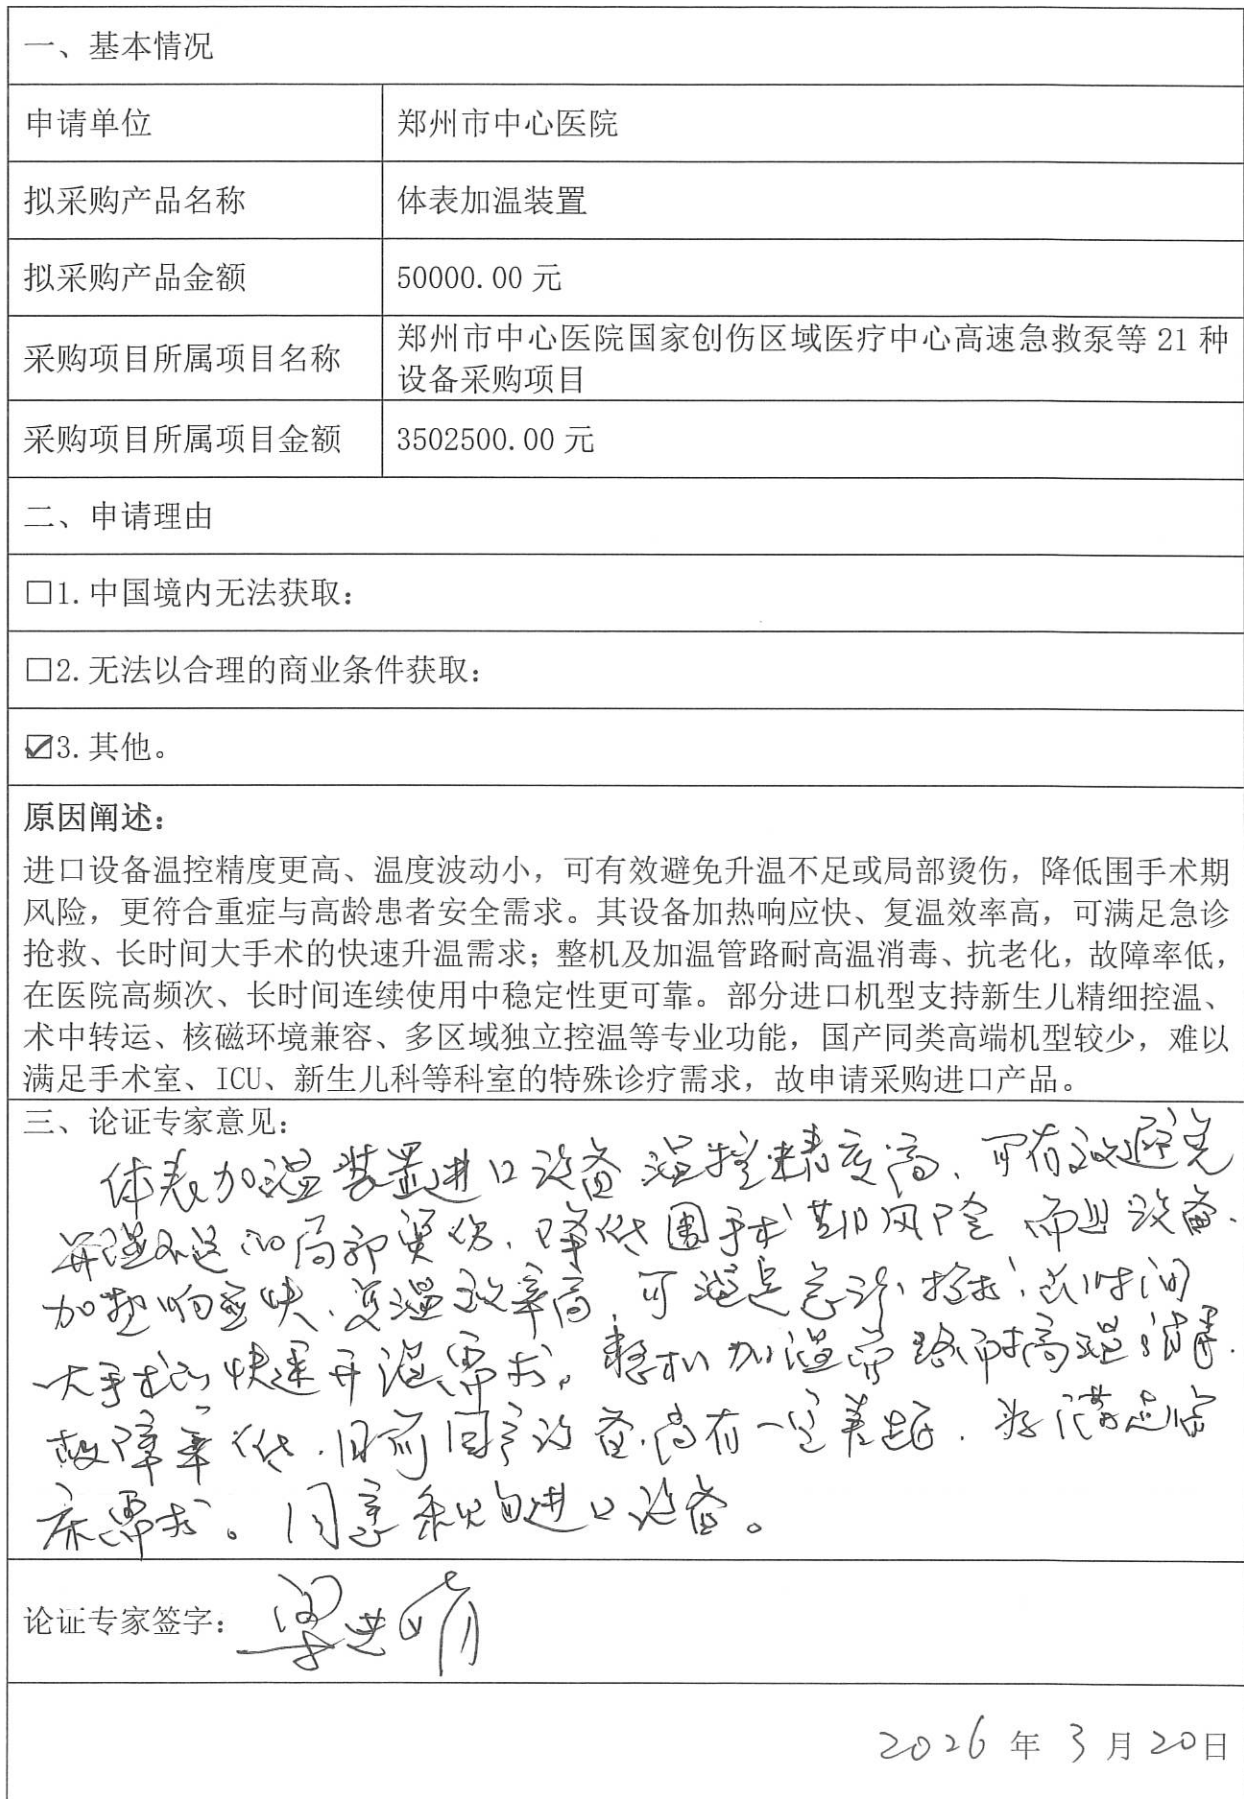 一、基本情况
申请单位 郑州市中心医院
拟采购产品名称 体表加温装置
拟采购产品金额 50000.00 元
采购项目所属项目名称 郑州市中心医院国家创伤区域医疗中心高速急救泵等 21 种
设备采购项目
采购项目所属项目金额 3502500.00 元
二、申请理由
□1. 中国境内无法获取：
□2. 无法以合理的商业条件获取：
☑3. 其他。
原因阐述：
进口设备温控精度更高、温度波动小，可有效避免升温不足或局部烫伤，降低围手术期
风险，更符合重症与高龄患者安全需求。其设备加热响应快、复温效率高，可满足急诊
抢救、长时间大手术的快速升温需求；整机及加温管路耐高温消毒、抗老化，故障率低，
在医院高频次、长时间连续使用中稳定性更可靠。部分进口机型支持新生儿精细控温、
术中转运、核磁环境兼容、多区域独立控温等专业功能，国产同类高端机型较少，难以
满足手术室、ICU、新生儿科等科室的特殊诊疗需求，故申请采购进口产品。
三、论证专家意见：
体表加温装置进口设备温控精度高、可有效避免
升温不足和局部烫伤、降低围手术期风险 而且设备
加热响应快、复温效率高，可满足急诊抢救、长时间
大手术的快速升温需求，整机加温管路耐高温消毒、
故障率低、目前国产设备尚有一定差距、满足临
床需求。同意采购进口设备。
论证专家签字：梁
2026 年 3 月 20 日